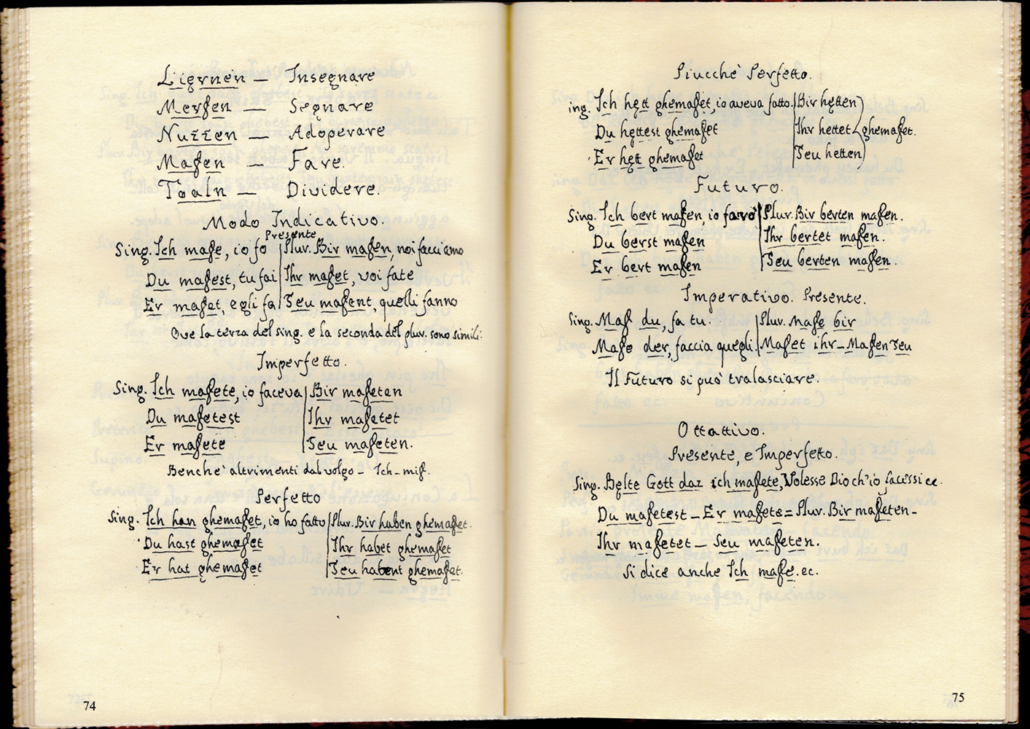 Lięrnen — Insegnare
Merſen — Segnare
Nuzzen — Adoperare
Maſen — Fare.
Toaln — Dividere.
Modo Indicativo.
Presente
Sing. Ich maſe, io fò Plur. Bir maſen, noi facciamo
Du maſest, tu fai Ihr maſet, voi fate
Er maſet, egli fa Seu maſent, quelli fanno
Ove la terza del sing. e la seconda del plur. sono simili.
Imperfetto.
Sing. Ich maſete, io faceva Bir maſeten
Du maſetest Ihr maſetet
Er maſete Seu maſeten.
Benche' altrimenti dal volgo - Ich - miſ.
Perfetto
Sing. Ich han ghemaſet, io ho fatto Plur. Bir haben ghemaſet.
Du hast ghemaſet Ihr habet ghemaſet
Er hat ghemaſet Seu habent ghemaſet.
74
Piucchè Perfetto.
ing. Ich hętt ghemaſet, io aveva fatto. Bir hętten
Du hęttest ghemaſet Ihr hettet ghemaſet.
Er hętt ghemaſet Seu hetten
Futuro.
Sing. Ich bert maſen io farò Plur. Bir berten maſen.
Du berst maſen Ihr bertet maſen.
Er bert maſen Seu berten maſen.
Imperativo. Presente.
Sing. Maſ du, fa tu. Plur. Maſe bir
Maſo der, faccia quegli Maſet ihr - Maſen seu
Il Futuro si può tralasciare.
Ottativo.
Presente, e Imperfetto.
Sing. Bęlte Gott daz ich maſete, Volesse Dio ch'io facessi ec.
Du maſetest - Er maſete = Plur. Bir maſeten -
Ihr maſetet - Seu maſeten.
Si dice anche Ich maſe. ec.
75